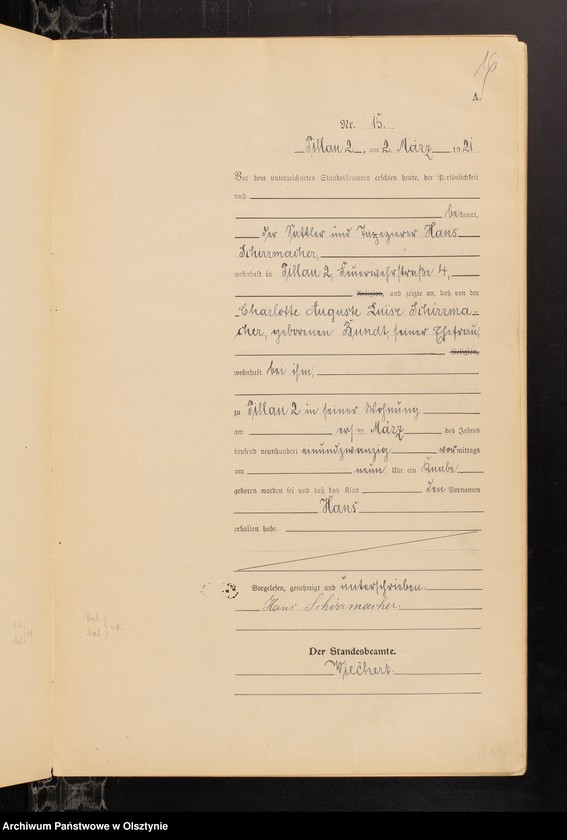 16
A.
Nr. 15.
Pillau 2, am 2. März 1921
Vor dem unterzeichneten Standesbeamten erschien heute, der Persönlichkeit
nach
bekannt,
der Sattler und Tapezierer Hans
Schirrmacher,
wohnhaft in Pillau 2, Feuerwehrstraße 4,
Religion, und zeigte an, daß von der
Charlotte Auguste Luise Schirrma-
cher, geborenen Bundt, seiner Ehefrau,
Religion,
wohnhaft bei ihm,
zu Pillau 2 in seiner Wohnung
am ersten März des Jahres
tausend neunhundert einundzwanzig vormittags
um neun Uhr ein Knabe
geboren worden sei und daß das Kind den Vornamen
Hans
erhalten habe.
Vorgelesen, genehmigt und unterschrieben.
Hans Schirrmacher.
Der Standesbeamte.
Wiechert.
Archiwum Państwowe w Olsztynie